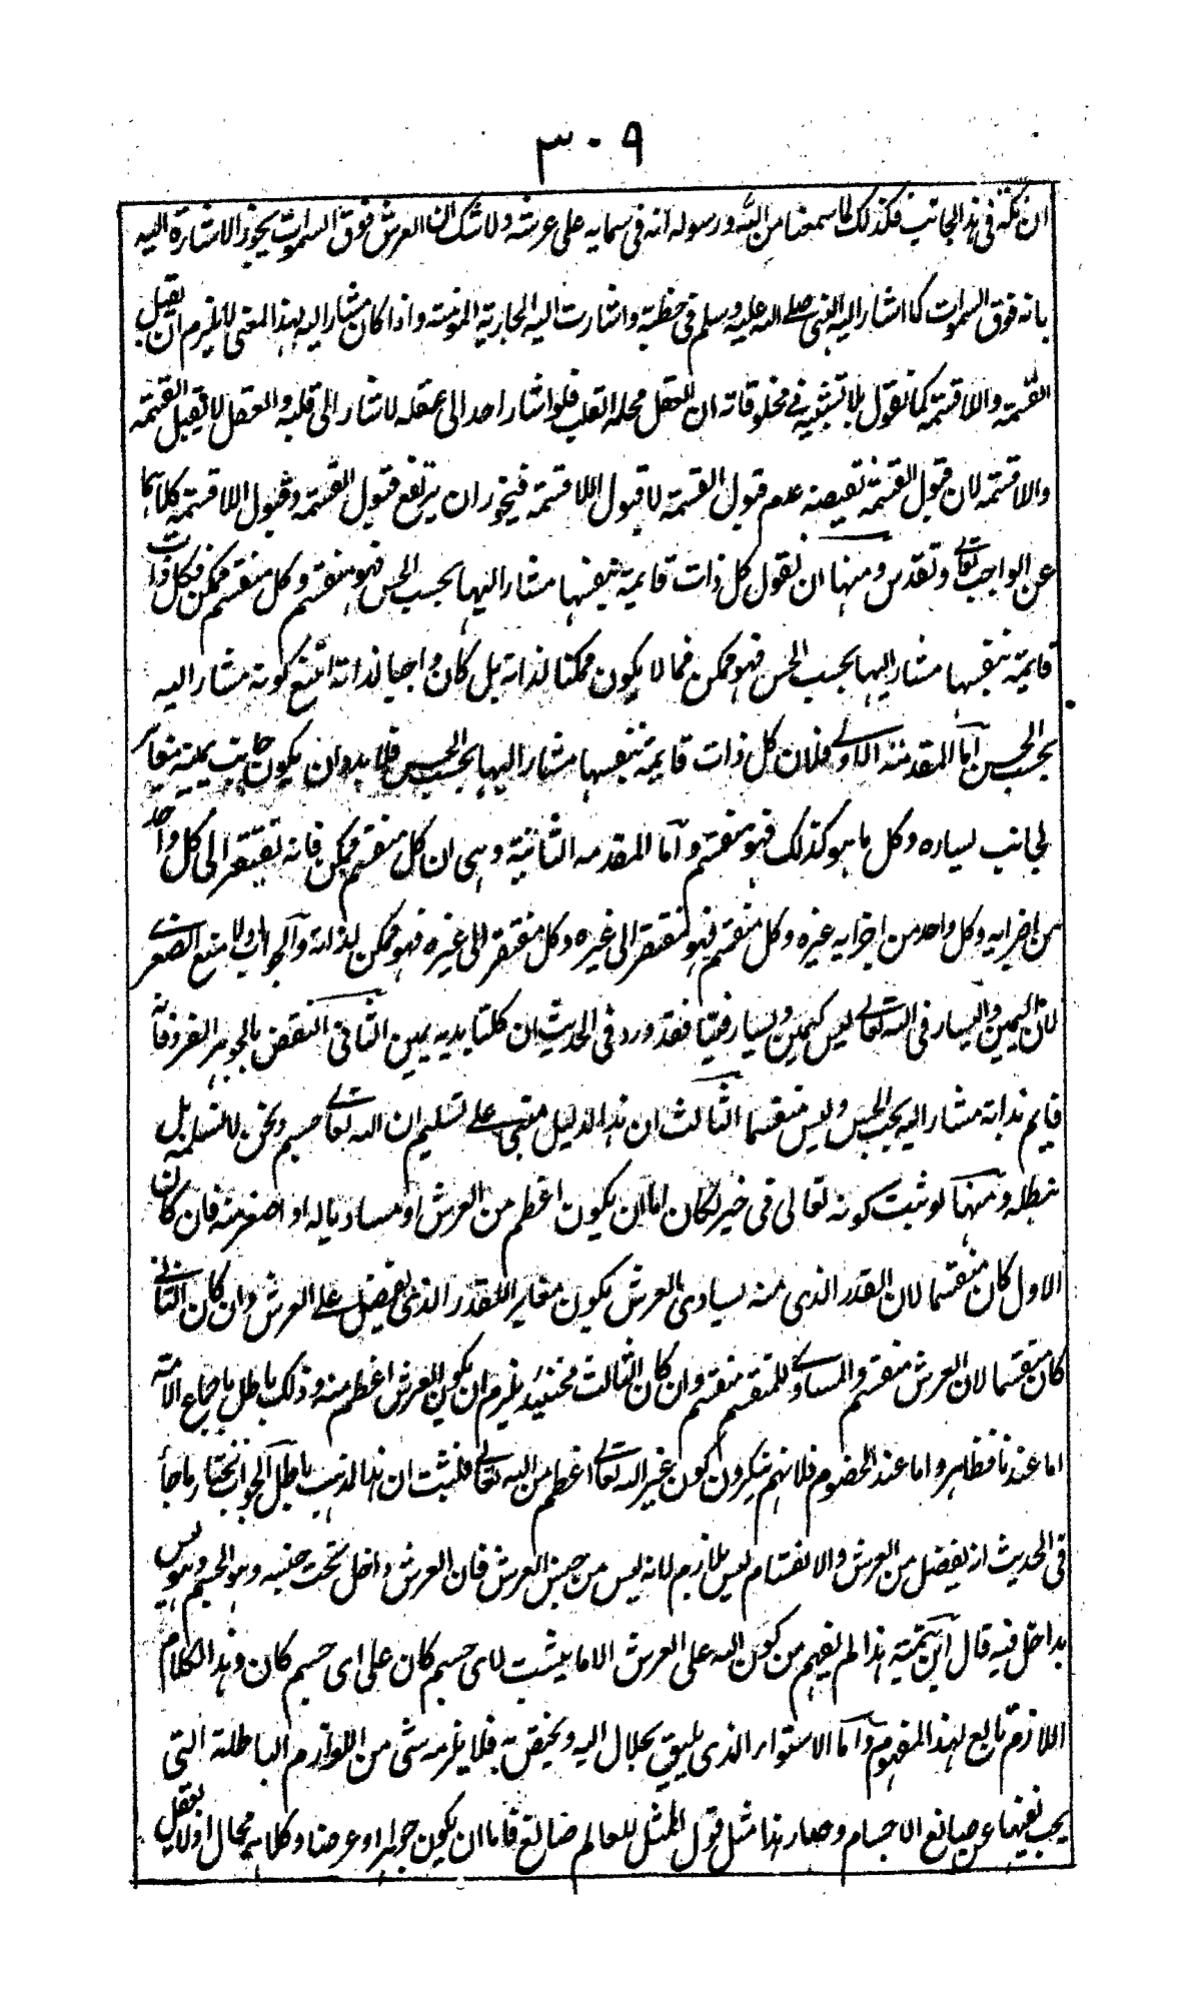 ٣٠٩
ان مكة فى هذا الجانب فكذلك لما سمعنا من الله ورسوله انه فى سمايه على عرشه ولا شك ان العرش فوق السموات يجوز الاشارة اليه
بانه فوق السموات كما اشار اليه النبى صلى الله عليه وسلم فى خطبته واشارت اليه الجارية المؤمنة واذا كان مشارا اليه بهذا المعنى لا يلزم ان يقبل
القسمة واللاقسمة كما نقول بلا تشبيه فى مخلوقاته ان العقل محله القلب فلو اشار احد الى عقله لاشار الى قلبه والعقل لا يقبل القسمة
واللاقسمة لان قبول القسمة نقيضه عدم قبول القسمة لا قبول اللاقسمة فيجوز ان يرتفع قبول القسمة وقبول اللاقسمة كلاهما
عن الواجب تعالى وتقدس ومنها ان نقول كل ذات قايمة بنفسها مشار اليها بحسب الحس فهو منقسم وكل منقسم ممكن فكل ذات
قايمة بنفسها مشار اليها بحسب الحس فهو ممكن فما لا يكون ممكنا لذاته بل كان واجبا لذاته امتنع كونه مشارا اليه
بحسب الحس أما المقدمة الاولى فلان كل ذات قايمة بنفسها مشار اليها بحسب الحس فلا بد وان يكون جانب يمينه مغائر
لجانب يساره وكل ما هو كذلك فهو منقسم وأما المقدمه الثانية وهى ان كل منقسم ممكن فانه تفتقر الى كل واحد
من اجزايه وكل واحد من اجزايه غيره وكل منقسم فهو مفتقر الى غيره وكل مفتقر الى غيره فهو ممكن لذاته والجواب اولا منع الصغرى
لان اليمين واليسار فى الله تعالى ليس كيمين ويسار فينا فقد ورد فى الحديث ان كلتا يديه يمين الثانى النقض بالجوهر الفرد فانه
قايم بذاته مشار اليه بحسب الحس وليس منقسما الثالث ان هذا الدليل مبنى على تسليم ان الله تعالى جسم ونحن لا نسلمه بل
نبطله ومنها لو ثبت كونه تعالى فى حيز لكان اما ان يكون اعظم من العرش او مساويا له او اصغر منه فان كان
الاول كان منقسما لان القدر الذى منه يساوى العرش يكون مغاير اللقدر الذى يفضل على العرش وان كان الثانى
كان منقسما لان العرش منقسم والمساوى للمنقسم منقسم وان كان الثالث فحينئذ يلزم ان يكون العرش اعظم منه وذلك باطل باجماع الامة
اما عندنا فظاهر واما عند الخصوم فلانهم ينكرون كون غير الله تعالى اعظم من الله تعالى فثبت ان هذا المذهب باطل الجواب نختار ما جاء
فى الحديث انه يفضل من العرش والانقسام ليس بلازم لانه ليس من جنس العرش فان العرش داخل تحت جنسه وهو الجسم وهو ليس
بداخل فيه قال ابن تيمية هذا لم يفهم من كون الله على العرش الا ما يثبت لاى جسم كان على اى جسم كان وهذا الكلام
اللازم تابع لهذا المفهوم وأما الاستواء الذى يليق بجلال الله ويختص به فلا يلزمه شى من اللوازم الباطلة التى
يجب نفيها عن صانع الاجسام وصار هذا مثل قول المثل للعالم صانع فاما ان يكون جوهرا او عرضا وكلاهما محال اولا يعقل